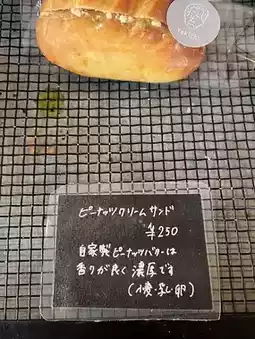 ピーナッツクリームサンド
¥250
自家製ピーナッツバターは
香りが良く濃厚です
(小麦・乳・卵)